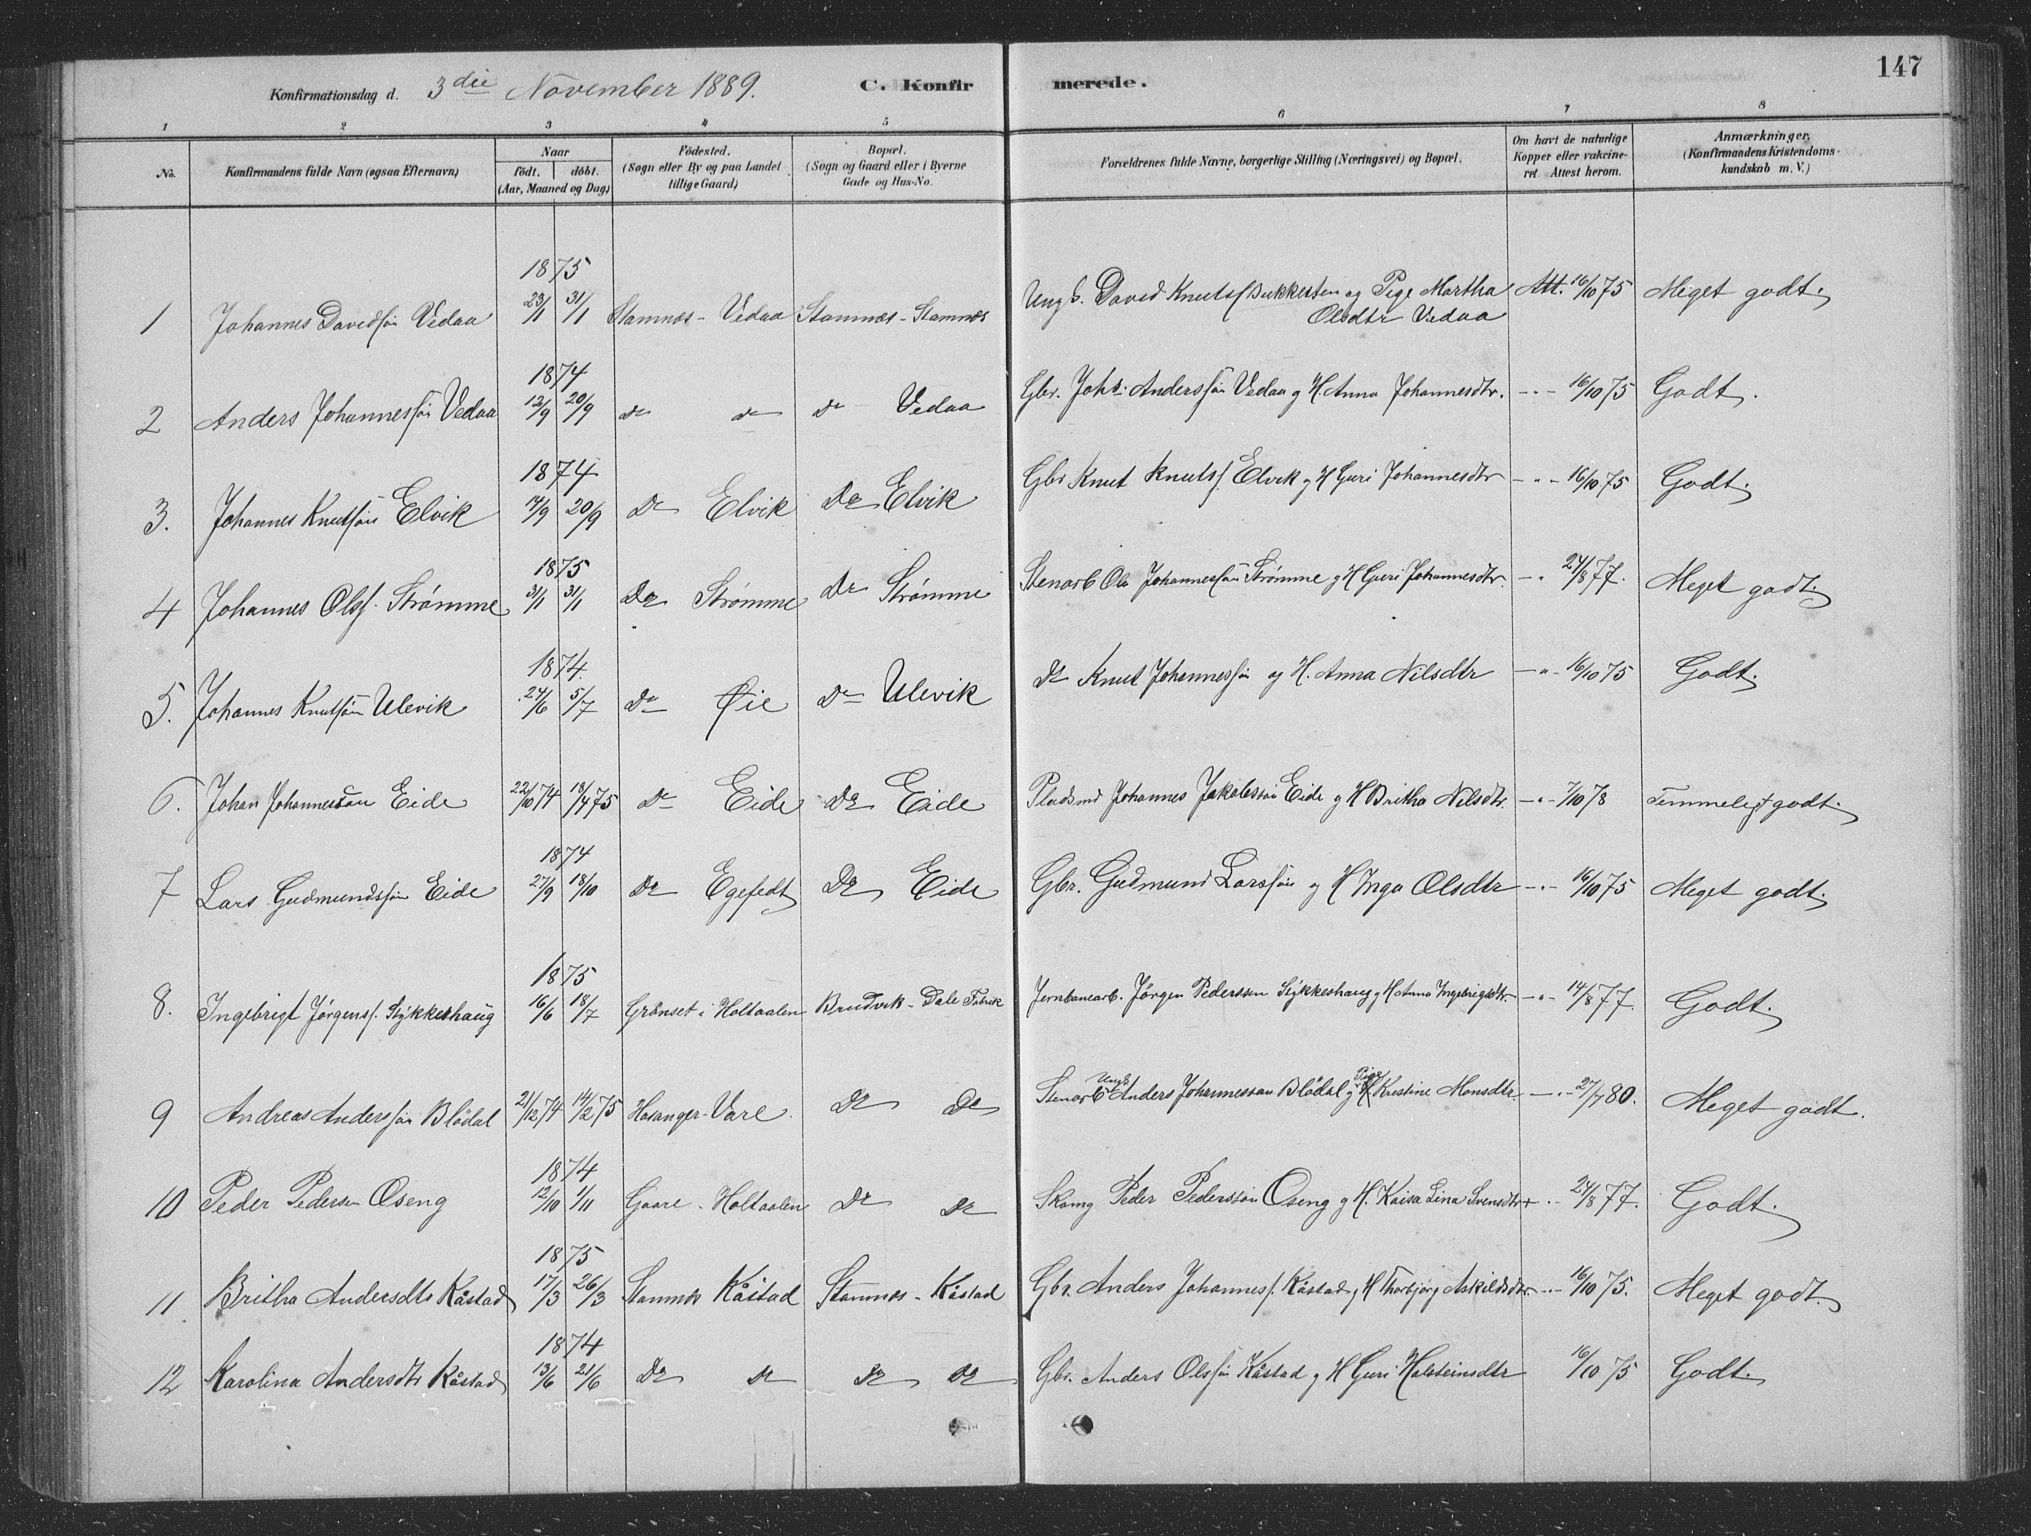 Konfirmationsdag d. 3die November 1889. C. Konfir merede. 147
1 2 3 4 5 6 7 8
No. Konfirmandens fulde Navn (ogsaa Efternavn) Naar födt. döbt. (Aar, Maaned og Dag) Födested. (Sogn eller By og paa Landet tillige Gaard) Bopæl. (Sogn og Gaard eller i Byerne Gade og Hus-No. Forældrenes fulde Navne, borgerlige Stilling (Næringsvei) og Bopæl. Om havt de naturlige Kopper eller vakcineret. Attest herom. Anmærkninger. (Konfirmandens Kristendomskundskab m. V.)
1875
1 Johannes Davidsøn Vedaa 23/1 31/1 Stamnæs - Vedaa Stamnæs - Stamnæs Ung C. David Knuts. og Pige Martha Olsdtr Vedaa Att. 16/10 75 Meget godt.
1874
2 Anders Johannessøn Vedaa 12/9 20/9 Do Do Do Vedaa Gbr. Johs. Anderssøn Vedaa og H. Anna Johannesdtr. - " - 16/10 75 Godt.
1874
3. Johannes Knutsøn Elvik 14/9 20/9 Do Elvik Do Elvik Gbr Knut Knuts. Elvik og H Guri Johannesdtr - " - 16/10 75 Godt.
1875
4 Johannes Olsf. Strømme 3/1 31/1 Do Strømme Do Strømme Stenarb Ole Johannessøn Strømme og H Guri Johannesdtr. - " 24/8 77. Meget godt
1874.
5. Johannes Knutsøn Ulevik 24/6 5/7 Do Øie Do Ulevik Do Knut Johannessøn og H. Anna Nilsdtr - " - 16/10 75 Godt.
6. Johan Johannesson Eide 22/10 74 18/4 75 Do Eide Do Eide Pladsmd Johannes Jakobssøn Eide og H Britha Nilsdtr. - " - 7/10 78 Temmeligt godt.
1874
7 Lars Gudmundssøn Eide 27/9 18/10 Do Egefedt Do Eide Gbr. Gudmund Larssøn og H Inga Olsdtr - " - 16/10 75 Meget godt.
1875
8. Ingebrigt Jørgens. Stykkeshaug 16/6 18/7 Grönset i Holtaalen Brudvik - Dale Fabrik Jernbanearb. Jørgen Pederssen Stykkeshaug og H Anna Ingebrigtsdtr. - " - 14/8 77. Godt.
9 Andreas Anderssøn Blödal 21/12 74 14/2 75 Hosanger - Vare Do Do Stenarb Ungk Anders Johannesson Blödal og Pige Kristine Monsdtr. - " - 27/7 80. Meget godt.
1874
10 Peder Pedersen Oseng 12/10 1/11 Gaare - Holtaalen Do Do Skomg Peder Pederssøn Oseng og H. Kaisa Lina Svensdtr - " - 24/8 77. Godt.
1875
11 Britha Andersdtr Kåstad 17/3 26/3 Stamnæs Kåstad Stamnæs - Kåstad Gbr. Anders Johannes. Kåstad og H Thorbjørg Askildsdtr - " - 16/10 75. Meget godt.
1874
12 Karolina Andersdtr Kåstad 13/6 21/6 Do Do Do Do Gbr. Anders Olssøn Kåstad og H Guri Holsteinsdtr 16/10 75 Godt.